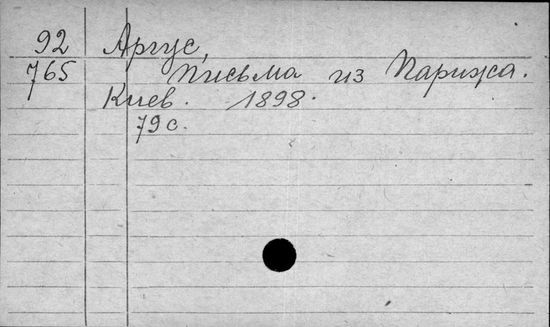 92 Аргус,
765 Письма из Парижа.
Киев. 1898.
79 с.